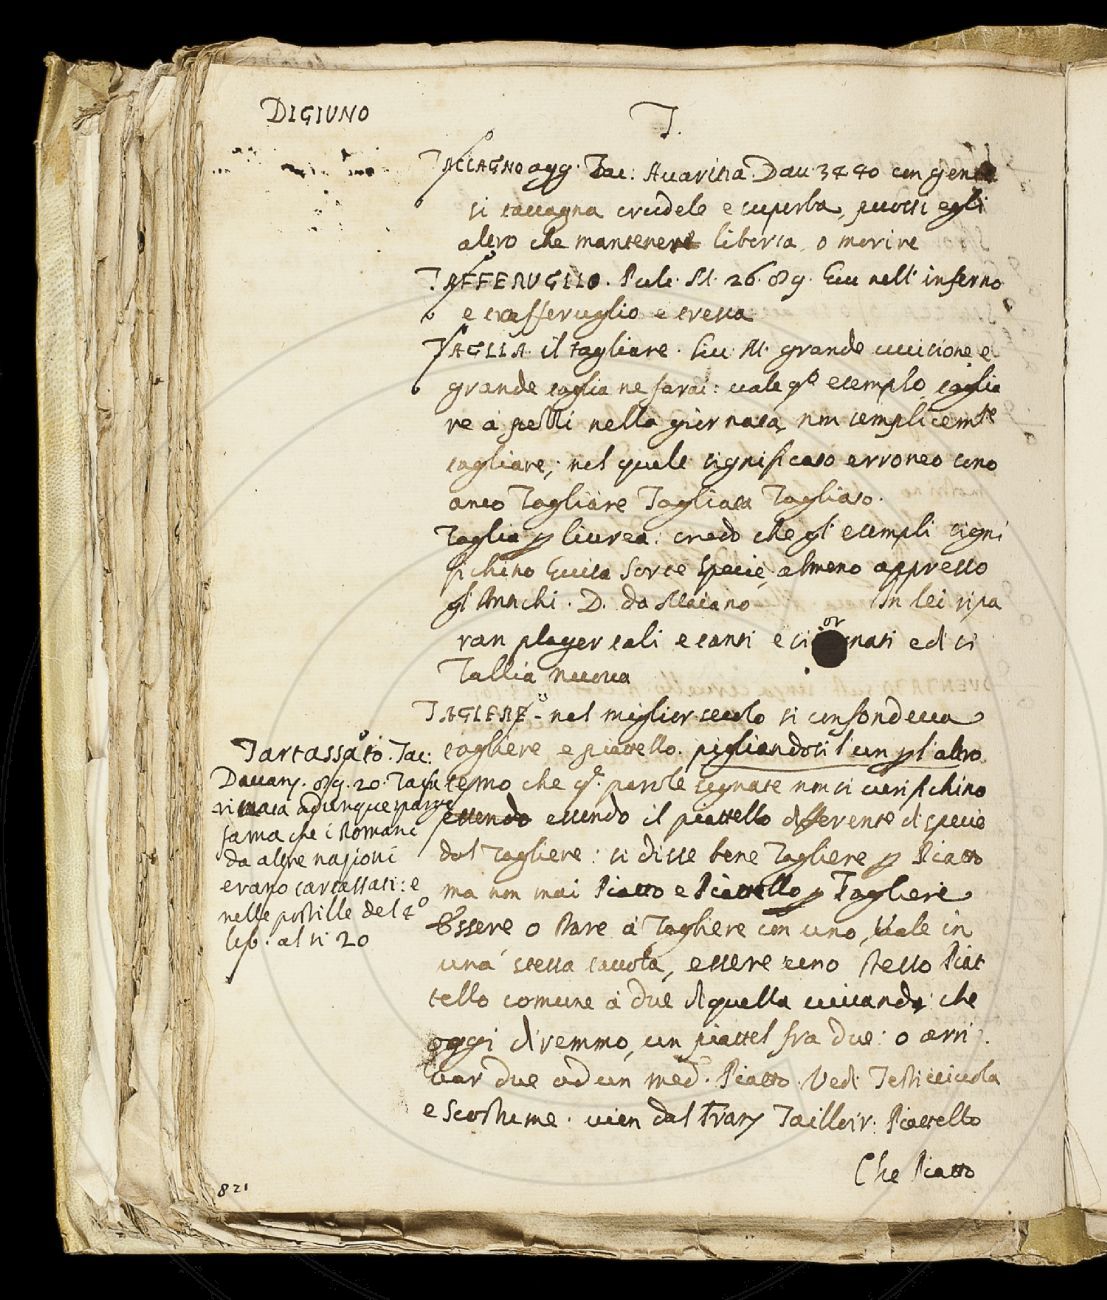 DIGIUNO
T.
TACCAGNO agg. Tac: Avarizia. Dav. 3440 con gente
sì taccagna crudele e superba, puossi egli
altro che mantenere libertà, o morire
TAFFERUGLIO. Pulc. M. 26. 89. giù nell' inferno
e tafferuglio e tresca
TAGLIA. il tagliare. Liv. M. grande uccisione e
grande taglia ne farai: vale qᵒ esemplo, taglia
re à pezzi nella giornata, non semplicemᵗᵉ
tagliare; nel quale significato erroneo sono
anco Tagliare Tagliata Tagliato.
Taglia p livrea: credo che gl' esempli signi
fichino Guisa Sorte Spezie, almeno appresso
gl' Antichi. D. da Maiano In lei ripa
ran plager tali e tanti e si
or
nati ed si
Tallia nuova
TAGLIERE - nel miglior secolo si confondeva
tagliere e piattello, pigliandosi l'un p l'altro.
temo che qᵉ parole segnate non si verifichino
essendo essendo il piattello differente di spezie
dal Tagliere: si disse bene Tagliere p Piatto
ma non mai Piatto e Piattello p Tagliere
Essere o Stare à Tagliere con uno, Vale in
una stessa tavola, essere uno stesso Piat
tello comune à due di quella vivanda: che
oggi diremmo, un piattel fra due: o arri
var due ad un med. Piatto. Vedi Testicciuola
e Scostume. vien dal Franz Tailleir: Piattello
Che Piatto
Tartassato. Tac:
Davanz. 89. 20. Tacfa
rimata adunque
fama che i Romani
da altre nazioni
erano tartassati: e
nelle postille del 4ᵒ
lib: al si 20
821